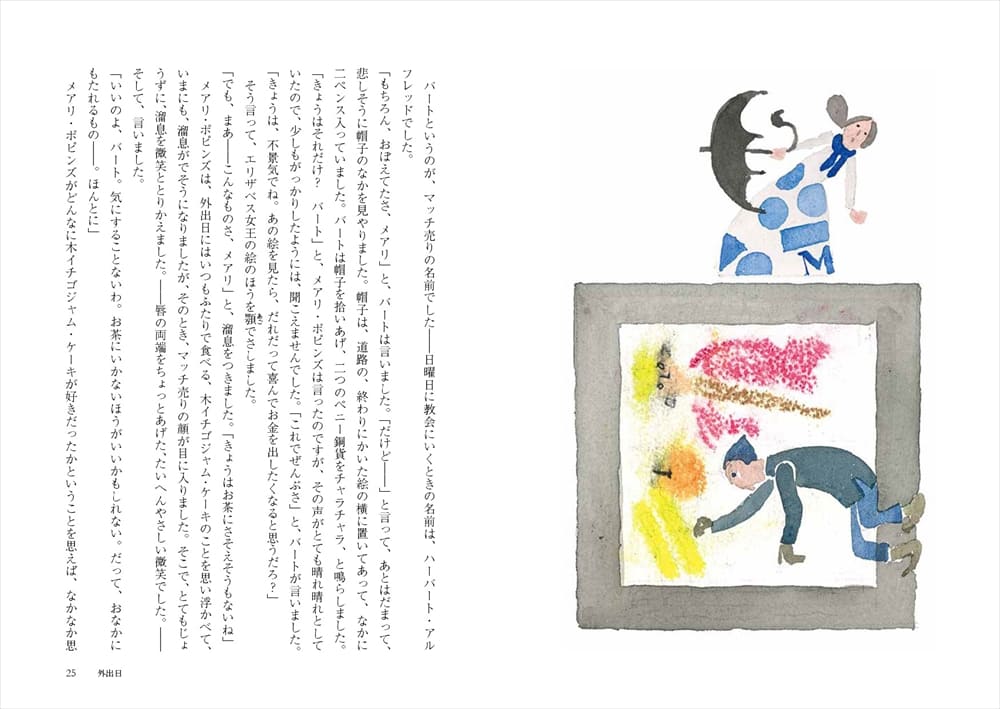 バートというのが、マッチ売りの名前でした――日曜日に教会にいくときの名前は、ハーバート・アル
フレッドでした。
「もちろん、おぼえてたさ、メアリ」と、バートは言いました。「だけど――」と言って、あとはだまって、
悲しそうに帽子のなかを見やりました。帽子は、道路の、終わりにかいた絵の横に置いてあって、なかに
二ペンス入っていました。バートは帽子を拾いあげ、二つのペニー銅貨をチャラチャラ、と鳴らしました。
「きょうはそれだけ？　バート」と、メアリ・ポピンズは言ったのですが、その声がとても晴れ晴れとして
いたので、少しもがっかりしたようには、聞こえませんでした。「これでぜんぶさ」と、バートが言いました。
「きょうは、不景気でね。あの絵を見たら、だれだって喜んでお金を出したくなると思うだろ？」
そう言って、エリザベス女王の絵のほうを顎あごでさしました。
「でも、まあ――こんなものさ、メアリ」と、溜息をつきました。「きょうはお茶にさそえそうもないね」
メアリ・ポピンズは、外出日にはいつもふたりで食べる、木イチゴジャム・ケーキのことを思い浮かべて、
いまにも、溜息がでそうになりましたが、そのとき、マッチ売りの顔が目に入りました。そこで、とてもじょ
うずに、溜息を微笑ととりかえました。――唇の両端をちょっとあげた、たいへんやさしい微笑でした。――
そして、言いました。
「いいのよ、バート。気にすることないわ。お茶にいかないほうがいいかもしれない。だって、おなかに
もたれるもの――。ほんとに」
メアリ・ポピンズがどんなに木イチゴジャム・ケーキが好きだったかということを思えば、なかなか思
25 外出日
M